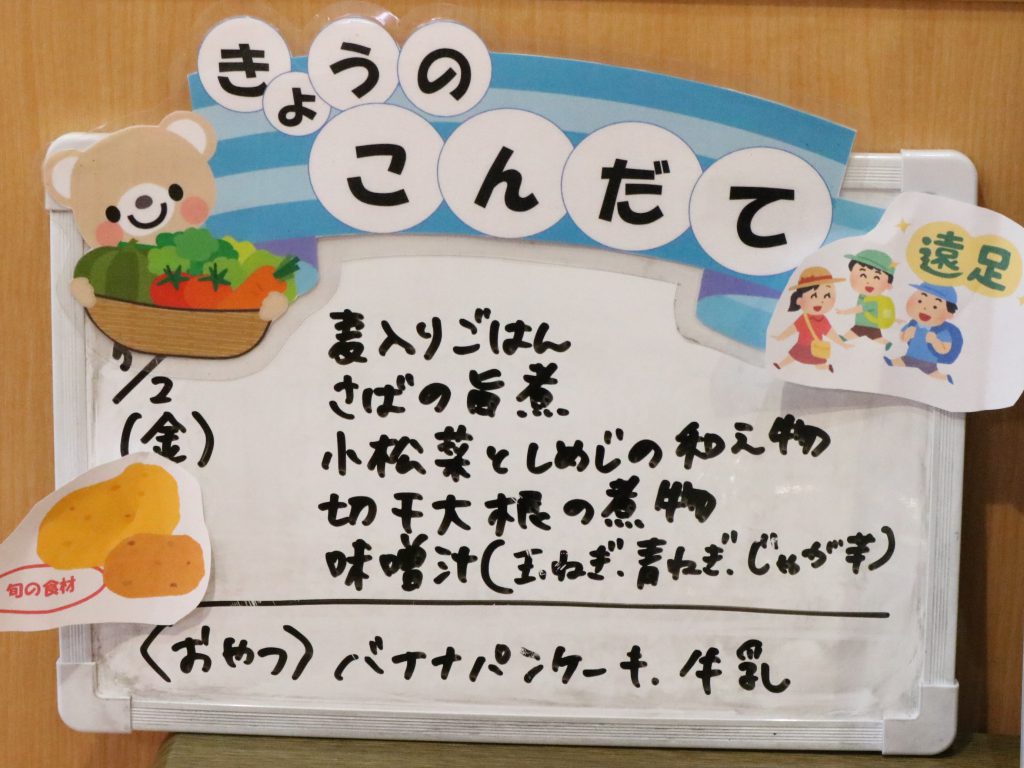 きょうの
こんだて
遠足
麦入りごはん
7/2
さばの旨煮
(金)
小松菜としめじの和え物
切干大根の煮物
味噌汁(玉ねぎ、青ねぎ、じゃが芋)
旬の食材
〈おやつ〉バナナパンケーキ、牛乳